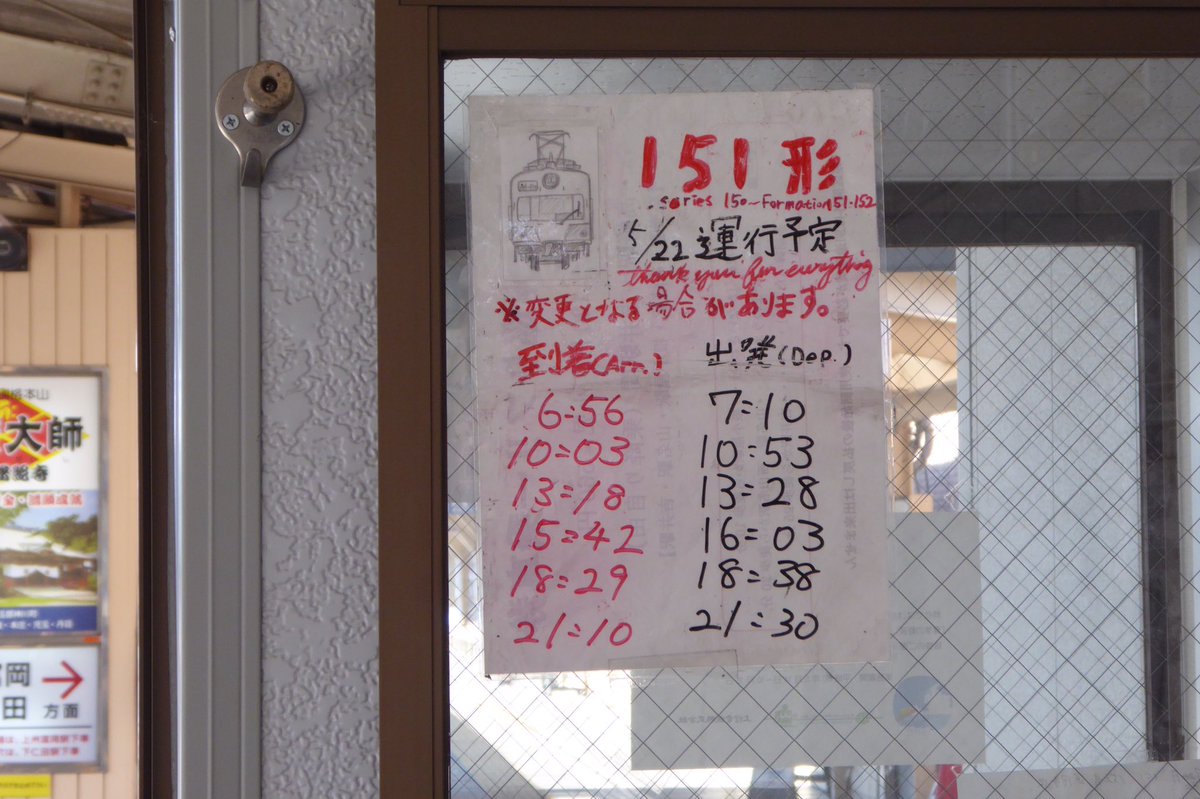 大師
岡
田 方面
151形
series 150~Formation151-152
5/22運行予定
thank you for everything
※変更となる場合があります。
到着(Arr.) 出発(Dep.)
6:56 7:10
10:03 10:53
13:18 13:28
15:42 16:03
18:29 18:38
21:10 21:30